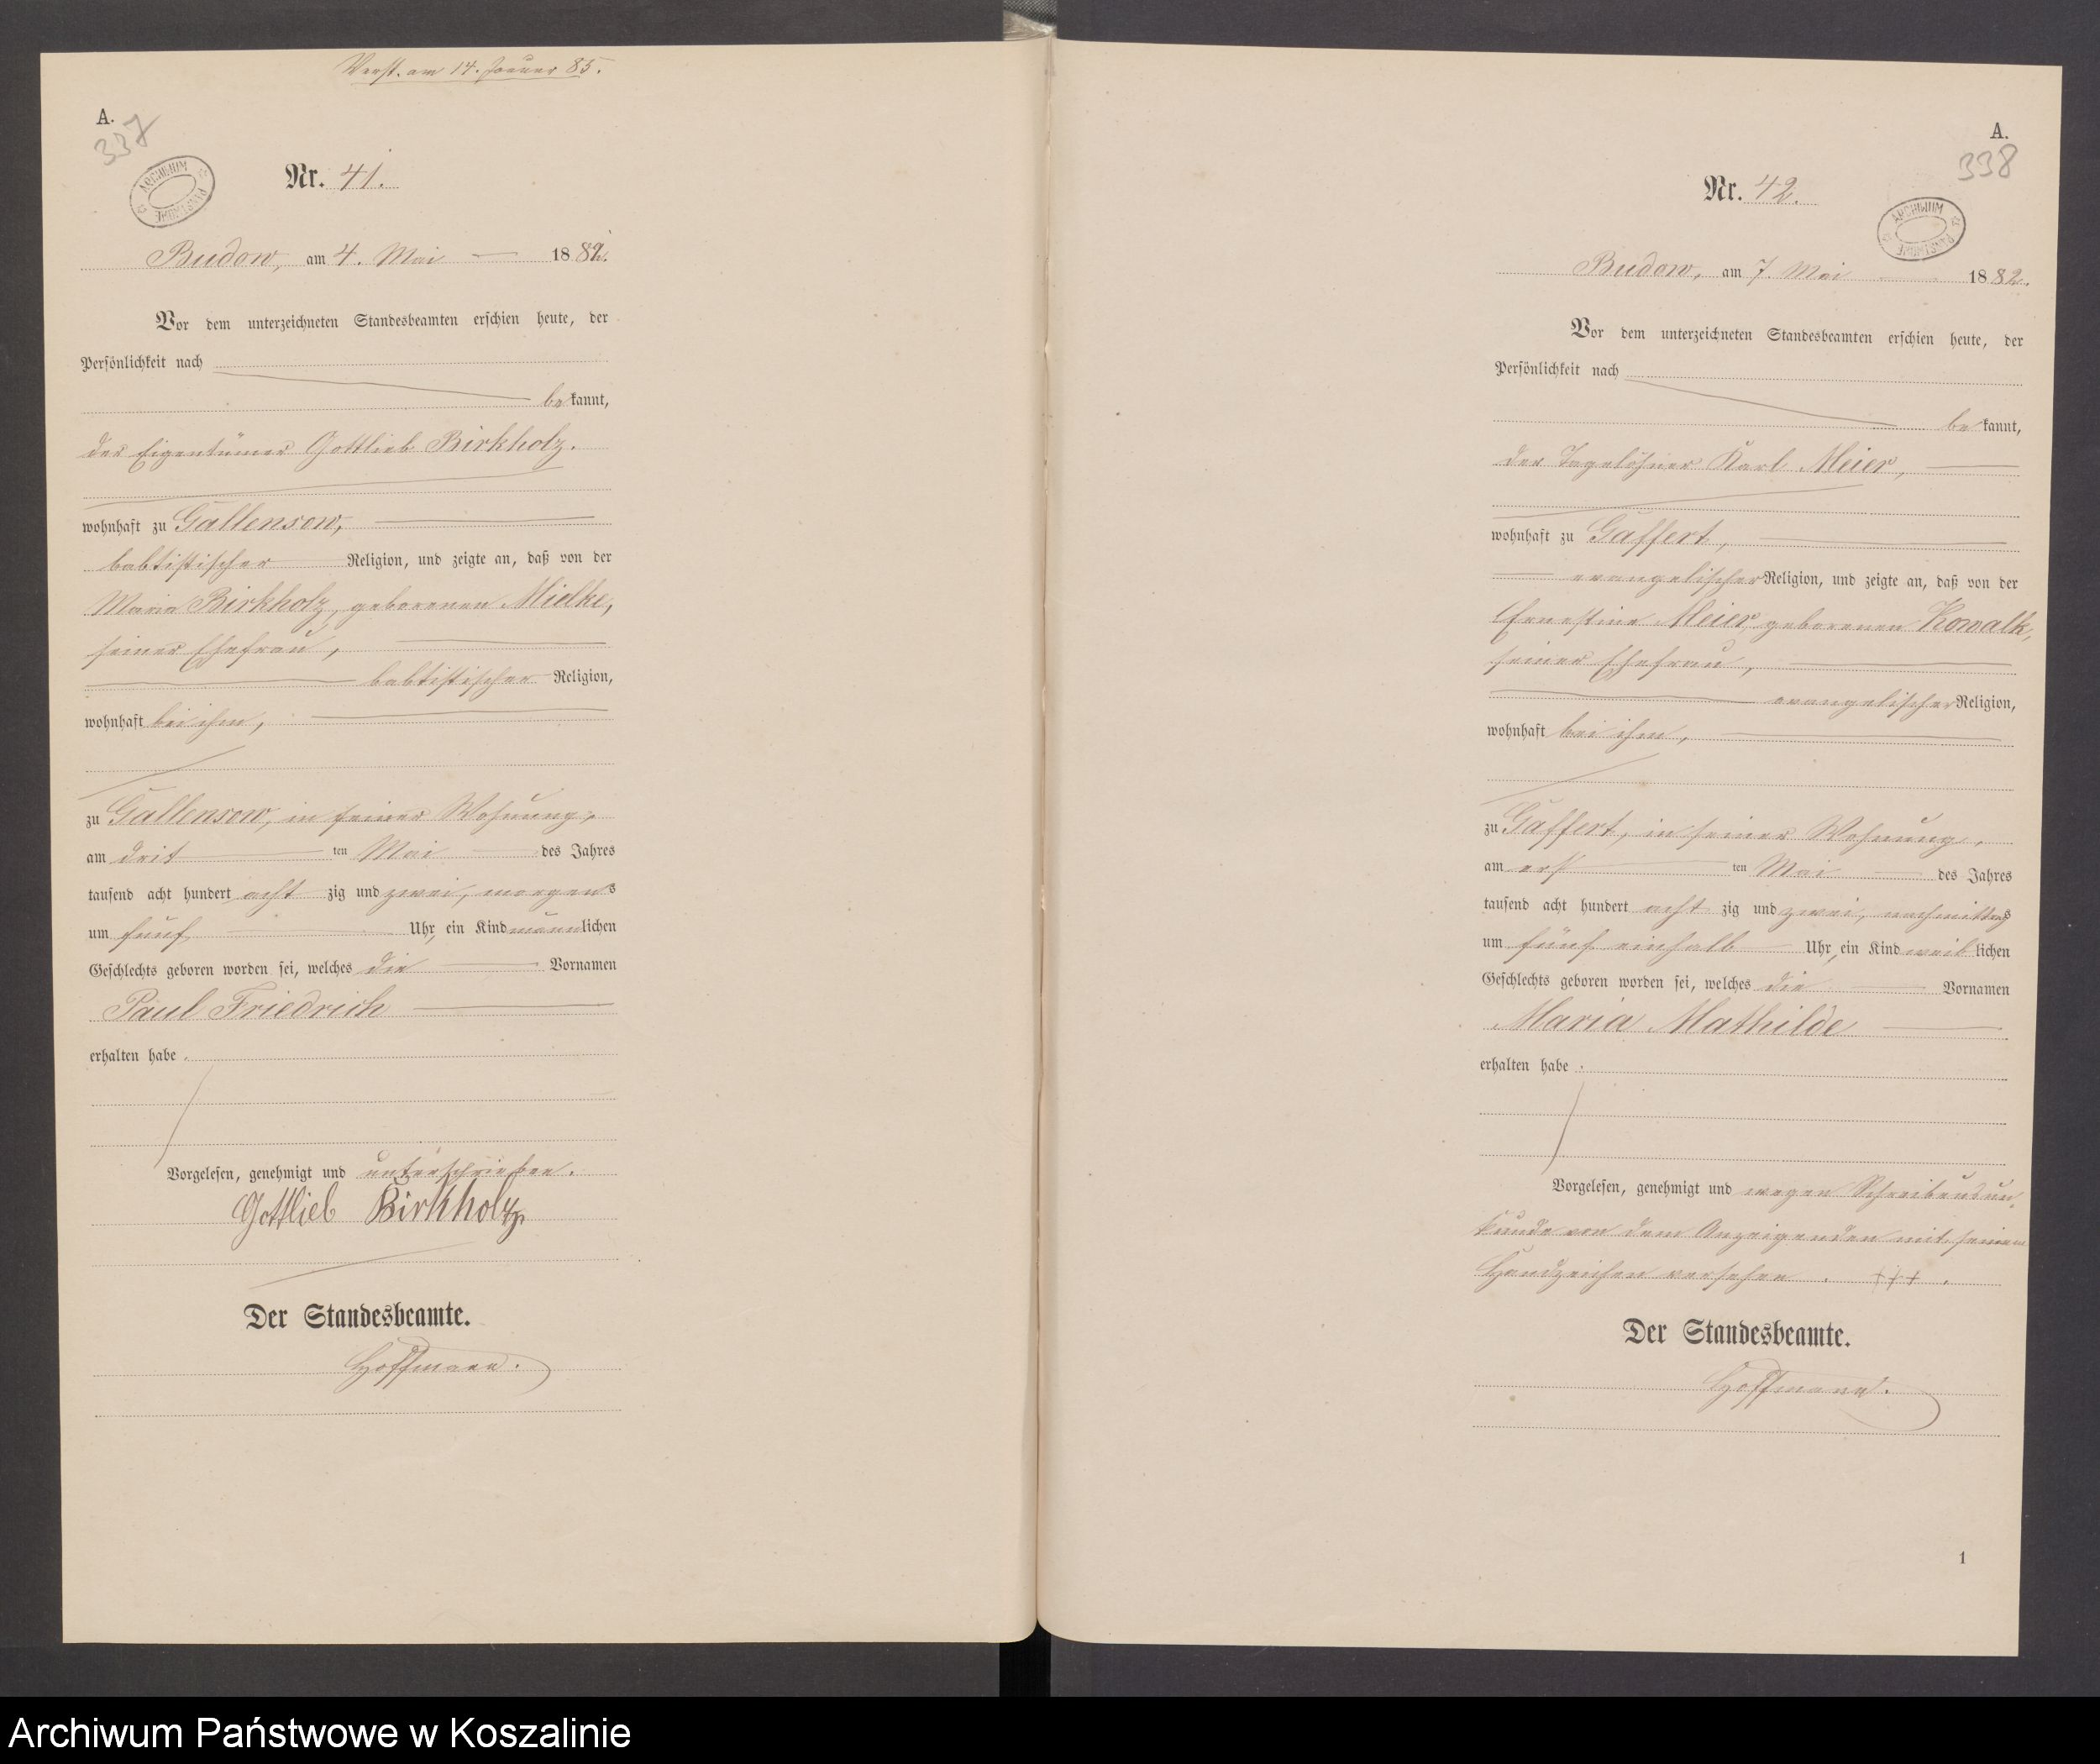 Verst. am 14. Januar 85.
A.
337
ARCHIWUM PAŃSTWOWE
Nr. 41.
Budow, am 4. Mai 1882.
Vor dem unterzeichneten Standesbeamten erschien heute, der
Persönlichkeit nach
bekannt,
der Eigentümer Gottlieb Birkholz.
wohnhaft zu Gallensow,
babtistischer Religion, und zeigte an, daß von der
Maria Birkholz, geborenen Mielke,
seiner Ehefrau,
babtistischer Religion,
wohnhaft bei ihm,
zu Gallensow, in seiner Wohnung,
am drit ten Mai des Jahres
tausend acht hundert acht zig und zwei, morgens
um fünf Uhr, ein Kind männlichen
Geschlechts geboren worden sei, welches die Vornamen
Paul Friedrich
erhalten habe.
Vorgelesen, genehmigt und unterschrieben.
Gottlieb Birkholz
Der Standesbeamte.
Hoffmann.
A.
338
Nr. 42.
ARCHIWUM PAŃSTWOWE
Budow, am 7. Mai 1882.
Vor dem unterzeichneten Standesbeamten erschien heute, der
Persönlichkeit nach
bekannt,
der Tagelöhner Karl Meier,
wohnhaft zu Gaffert,
evangelischer Religion, und zeigte an, daß von der
Ernestine Meier, geborenen Kowalk,
seiner Ehefrau,
evangelischer Religion,
wohnhaft bei ihm,
zu Gaffert, in seiner Wohnung,
am ers ten Mai des Jahres
tausend acht hundert acht zig und zwei, nachmittags
um fünf einhalb Uhr, ein Kind weiblichen
Geschlechts geboren worden sei, welches die Vornamen
Maria Mathilde
erhalten habe.
Vorgelesen, genehmigt und wegen Schreibensun-
kunde von dem Anzeigenden mit seinem
Handzeichen versehen. +++.
Der Standesbeamte.
Hoffmann.
1
Archiwum Państwowe w Koszalinie